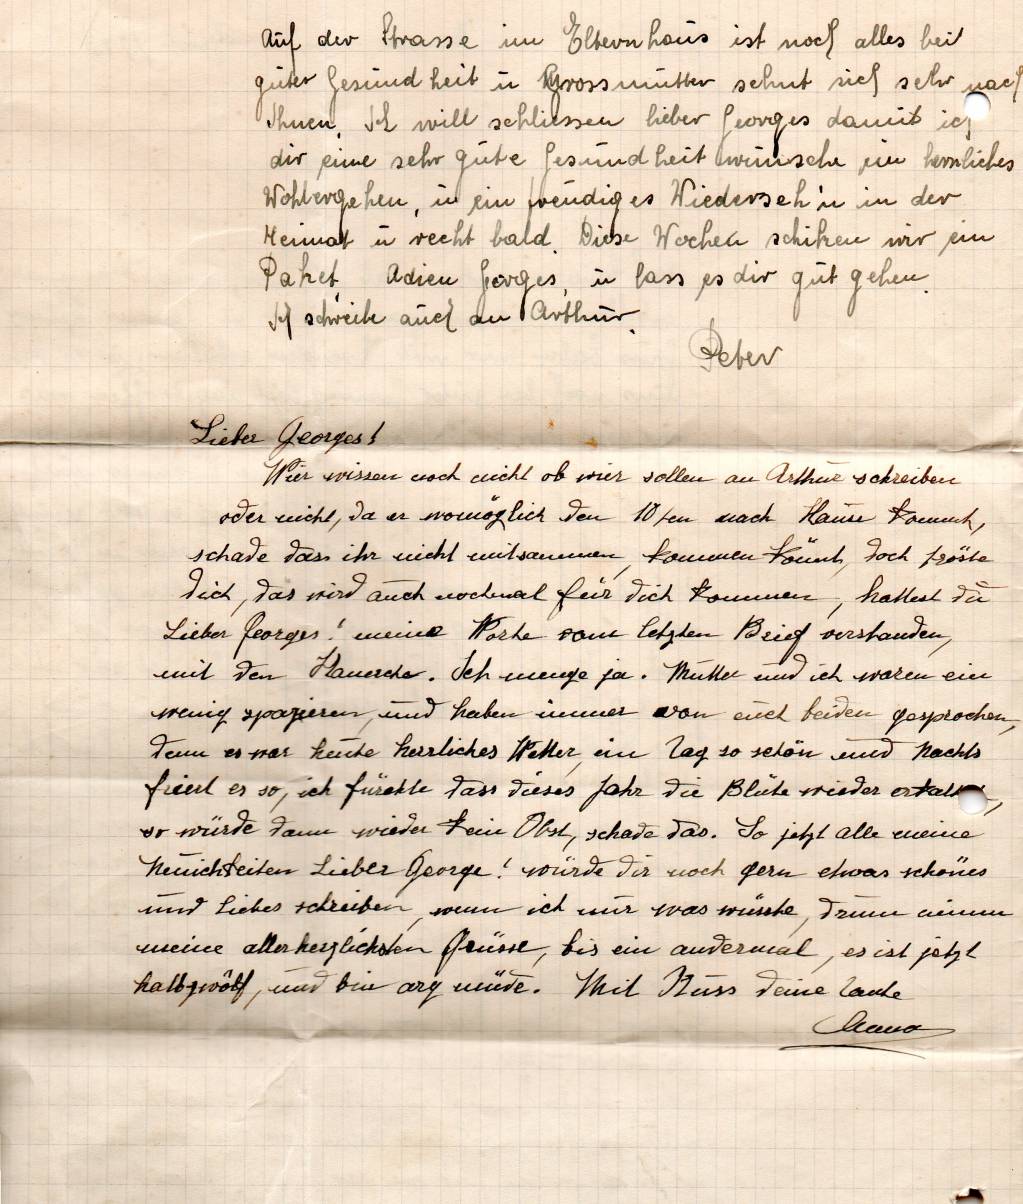 Auf der Strasse im Elternhaus ist noch alles bei
guter Gesundheit u Grossmutter sehnt sich sehr nach
Ihnen. Ich will schliessen lieber Georges damit ich
dir eine sehr gute Gesundheit wünsche ein herrliches
Wohlergehen, u ein freudiges Wiederseh'n in der
Heimat u recht bald. Diese Wochen schiken wir ein
Paket. Adieu Georges, u lass es dir gut gehen.
Ich schreibe auch an Arthur.
Peter
Lieber Georges!
Wier wissen noch nicht ob wier sollen an Arthur schreiben
oder nicht, da er womöglich den 10ten nach Hause kommt,
schade dass ihr nicht mitsammen, kommen könnt, doch tröste
dich, das wird auch nochmal für dich kommen, hattest du
Lieber Georges! meine Worte vom letzten Brief verstanden,
mit den . Ich menge ja. Mutter und ich waren ein
wenig spazieren, und haben immer von euch beiden gesprochen,
denn es war heute herrliches Wetter, ein Tag so schön und Nachts
friert es so, ich fürchte dass dieses Jahr die Blüte wieder
so würde dann wieder kein Obst, schade das. So jetzt alle meine
Neuichkeiten Lieber George! würde dir noch gern etwas schönes
und liebes schreiben, wenn ich nur was wüsste, drum nimm
meine allerherzlichsten Grüsse, bis ein andermal, es ist jetzt
halbzwölf, und bin arg müde. Mit Kuss deine Tante
Anna